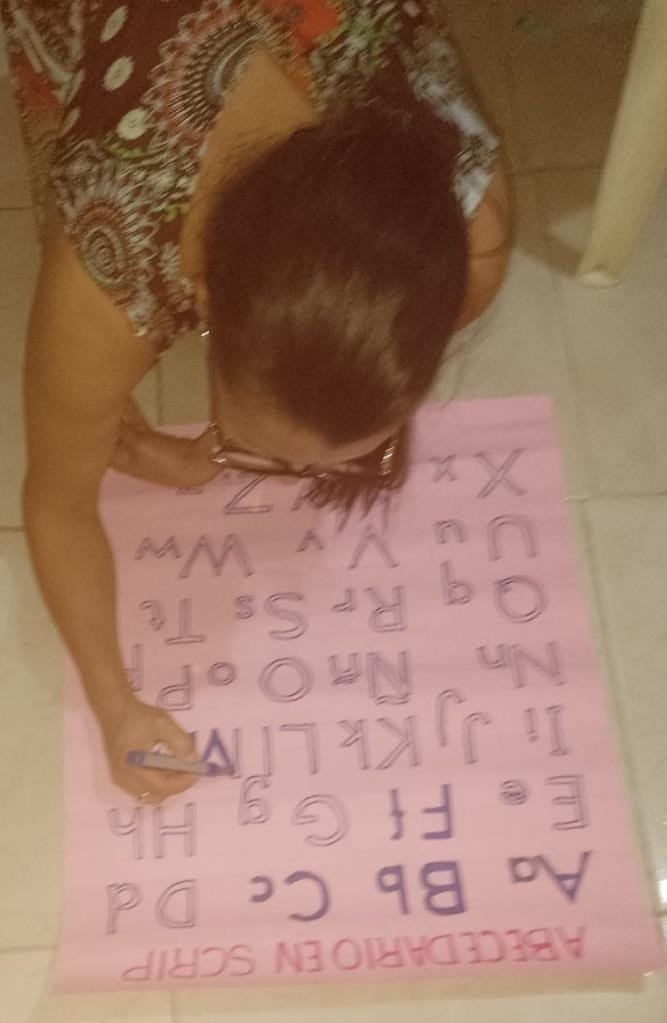 ABECEDARIO EN SCRIP
Aa Bb Cc Dd
Ee Ff Gg Hh
Ii Jj Kk Ll M
Nn Ññ Oo Pp
Qq Rr Ss Tt
Uu Vv Ww
Xx Z